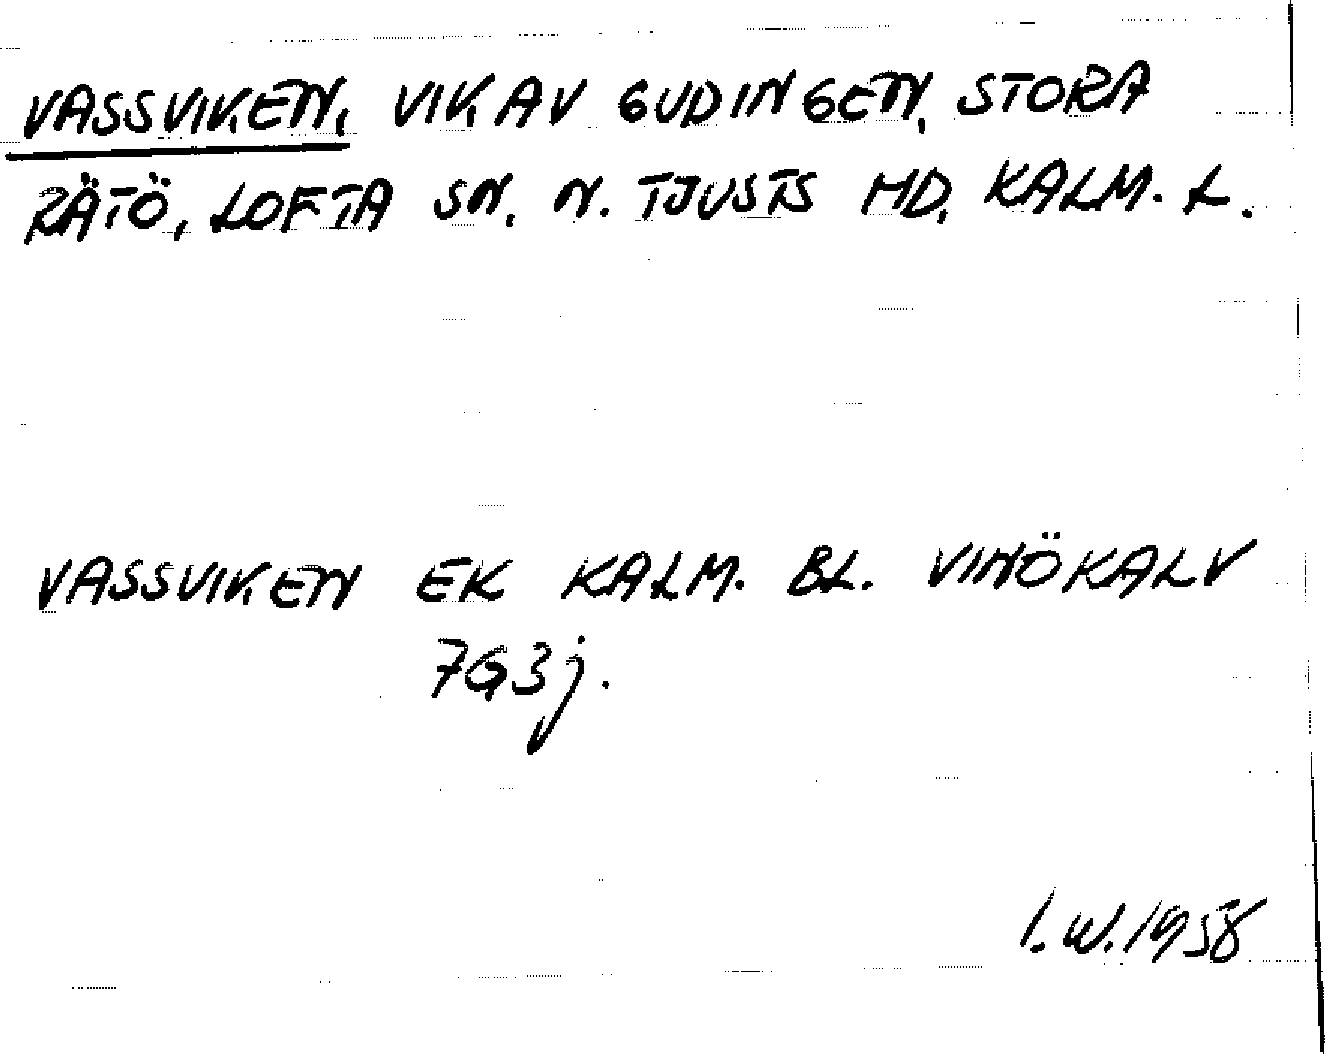 VASSVIKEN, VIK AV GUDINGEN, STORA
RÄTÖ, LOFTA SN, N. TJUSTS HD, KALM. L.
VASSVIKEN EK KALM. BL. VINÖKALV
7G3j.
I.W. 1958